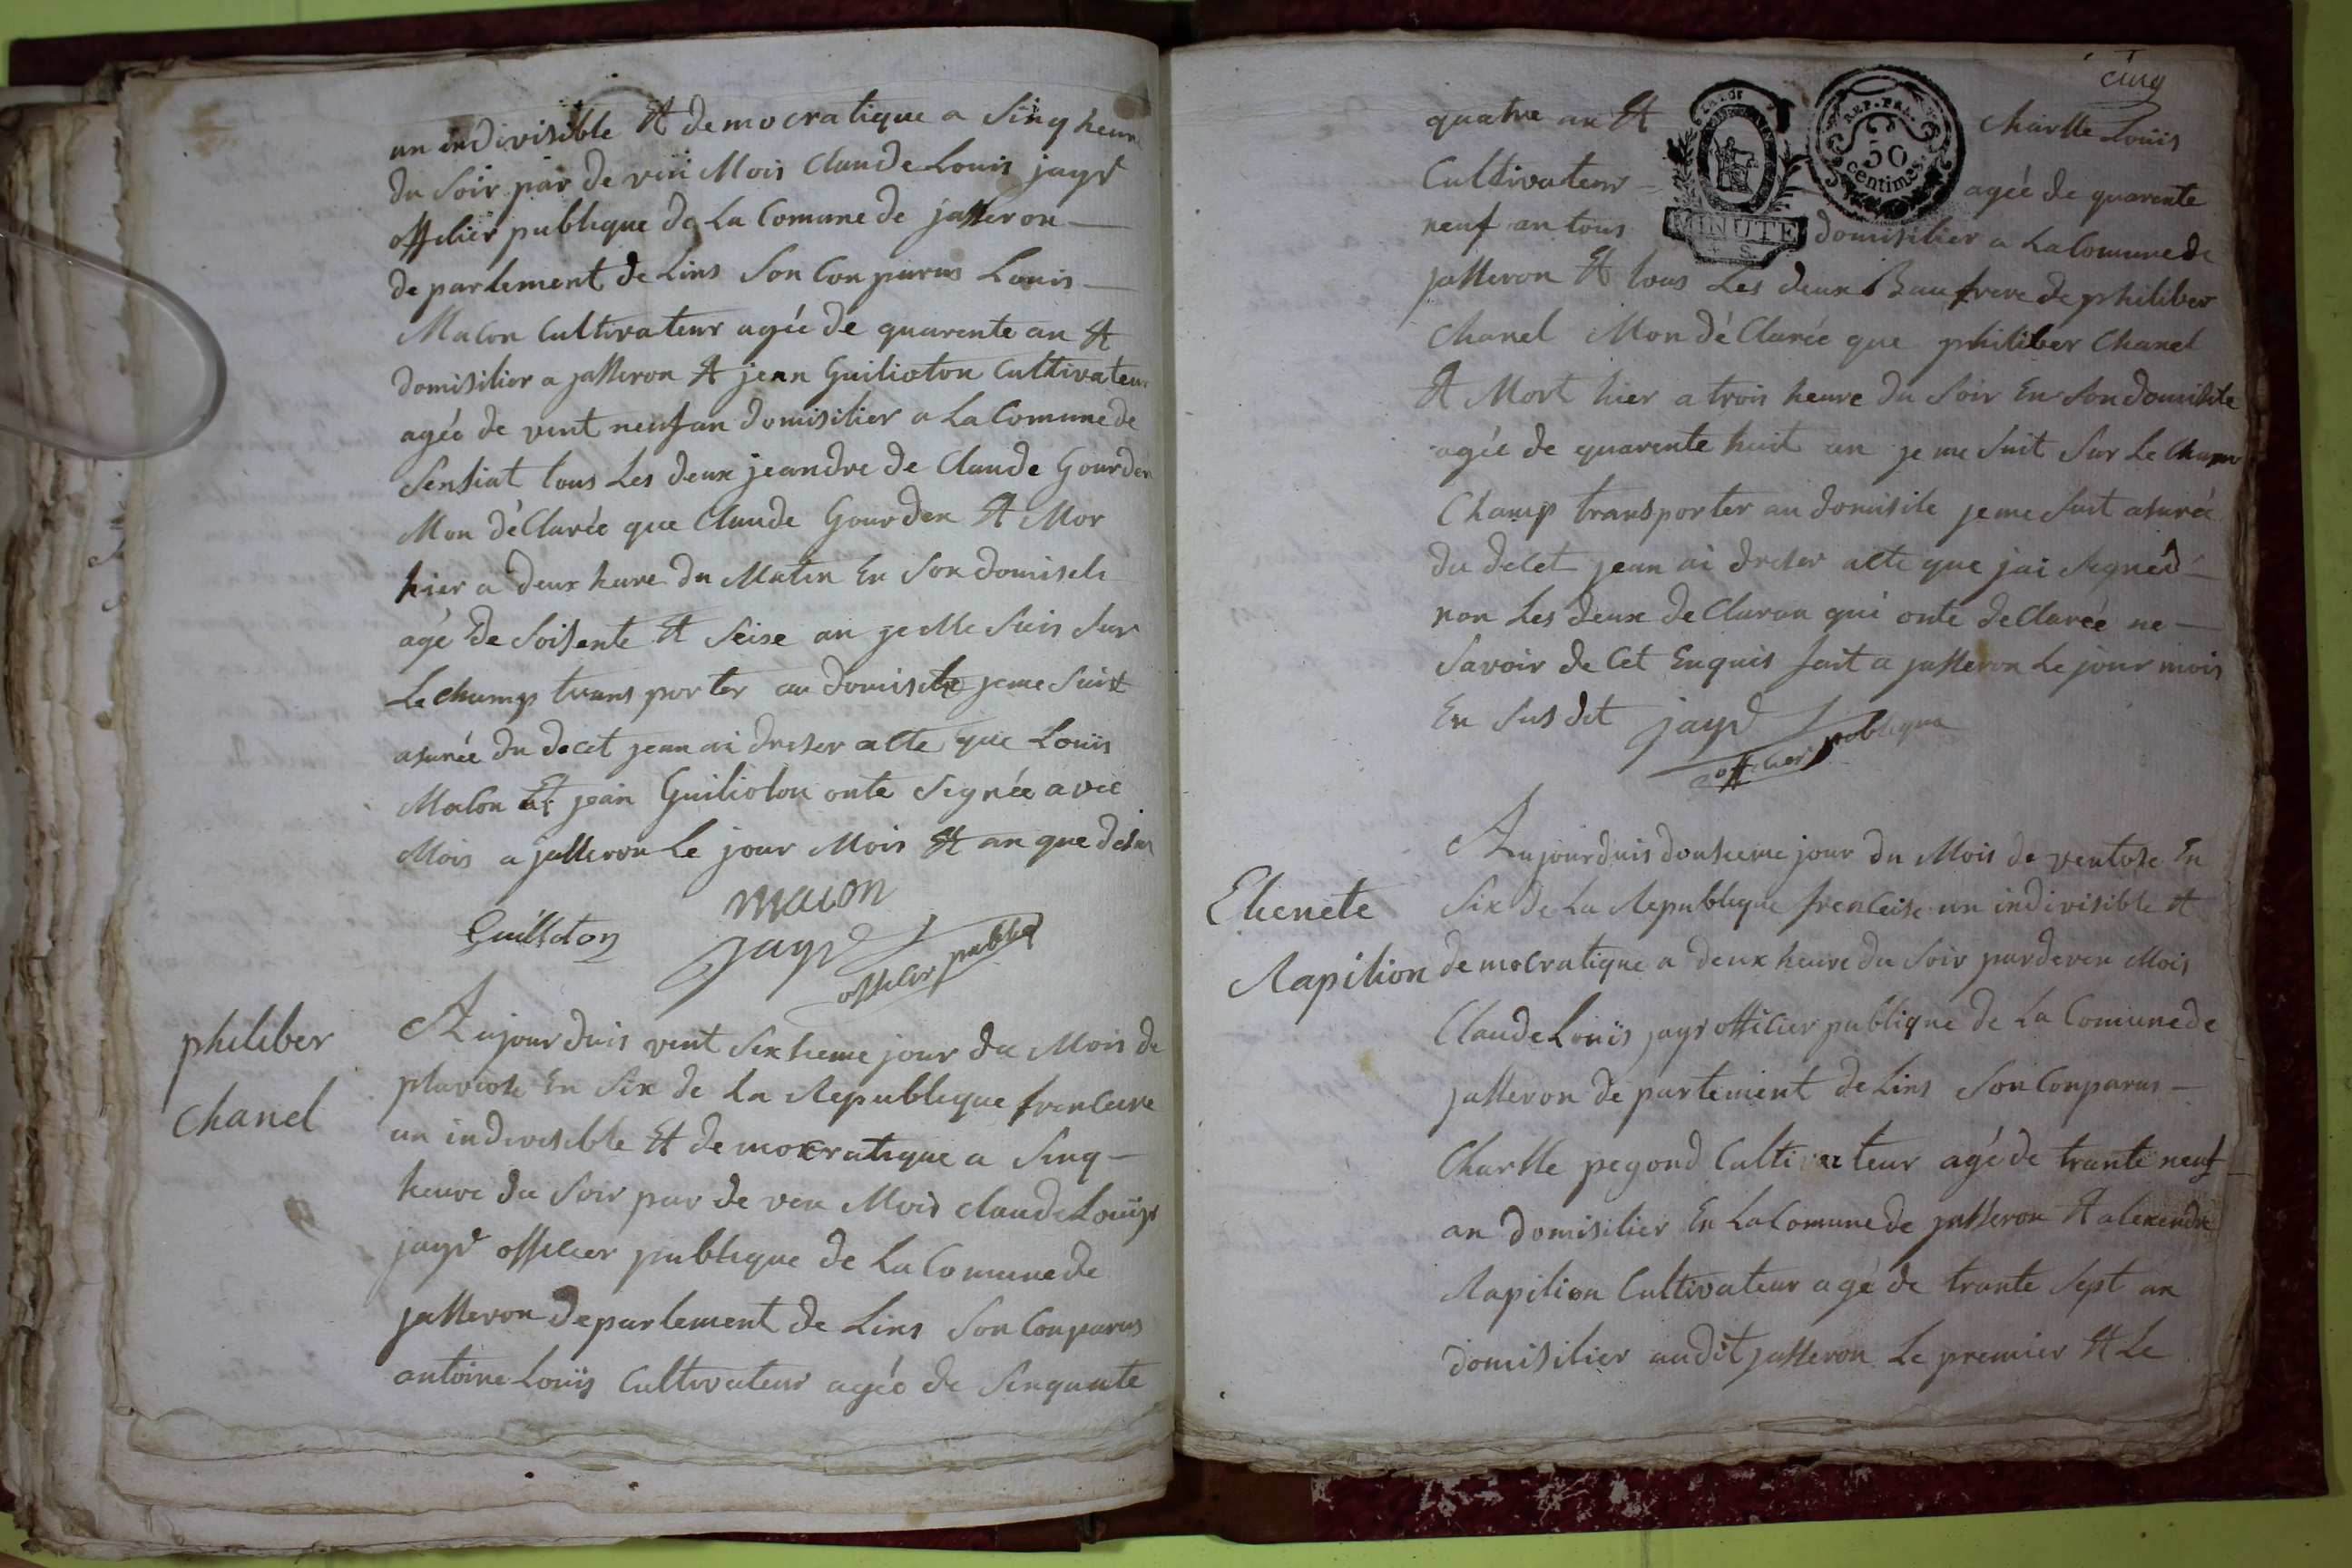 un indivisible Et democratique a Sinq heure
du Soir par de veni Mois Claude Louis jayr
officier publique de La Comune de jasseron
departement de Lins Son Conparus Louis
Macon Cultivateur agée de quarente an Et
domisilier a jasseron Et jean Guilioton Cultivateur
agée de vent neuf an domisilier a La Comune de
Sensiat tous Les deux jeandre de Claude Gourden
Mon déClarée que Claude Gourden Et Mor
hier a deux heure du Matin En Son domisele
agé de Soisente Et Seise an je Me Suis Sur
Le champ trans porter au domisele je me Suit
asurée du decet jean ai dreser acte que Louïs
Macon Et jean Guilioton onte Segnée avec
Mois a jasseron Le jour Mois Et an que desus
macon
Guilloton jayr officier publiq
philiber
Chanel
Aujourduis vent Sixsieme jour du Mois de
pluviose En Six de La Republeque frenceise
un indivesible Et democratique a Sinq
heure du Soir par de ven Mois Claude Louïs
jayr officier publeque de La Comune de
jasseron departement de Lins Son Conparus
antoine Louïs Cultivateur agée de Sinquante
cinq
quatre an Et Charlle Louïs
REP. FRA.
50
centimes.
Cultivateur agée de quarente
MINUTE
neuf an tous domisilier a La Comune de
jasseron Et tous Les deux Baufrere de philiber
Chanel Mon déClarée que philiber Chanel
Et Mort hier a trois heure du Soir En Son domisile
agée de quarente huit an je me Suit Sur Le Champ
Champ transporter au domisile je me Suit asurée
du decet jean ai dreser acte que jai Segné
non Les deux deClaran qui onte deClarée ne
Savoir de Cet Enquis fait a jasseron Le jour mois
En Sus dit jayr officier publique
Etienete
Rapilion
Aujourduis dousieme jour du Mois de ventose En
Six de La Republique frenceise un indivisible Et
democratique a deux heure du Soir par deven Mois
Claude Louïs jayr officier publique de La Comune de
jasseron departement de Lins Son Conparus
Charlle pegond Cultivateur agé de trante neuf
an domisilier En La Comune de jasseron Et alexendre
Rapilion Cultivateur agé de trante Sept an
domisilier audit jasseron Le premier Et Le